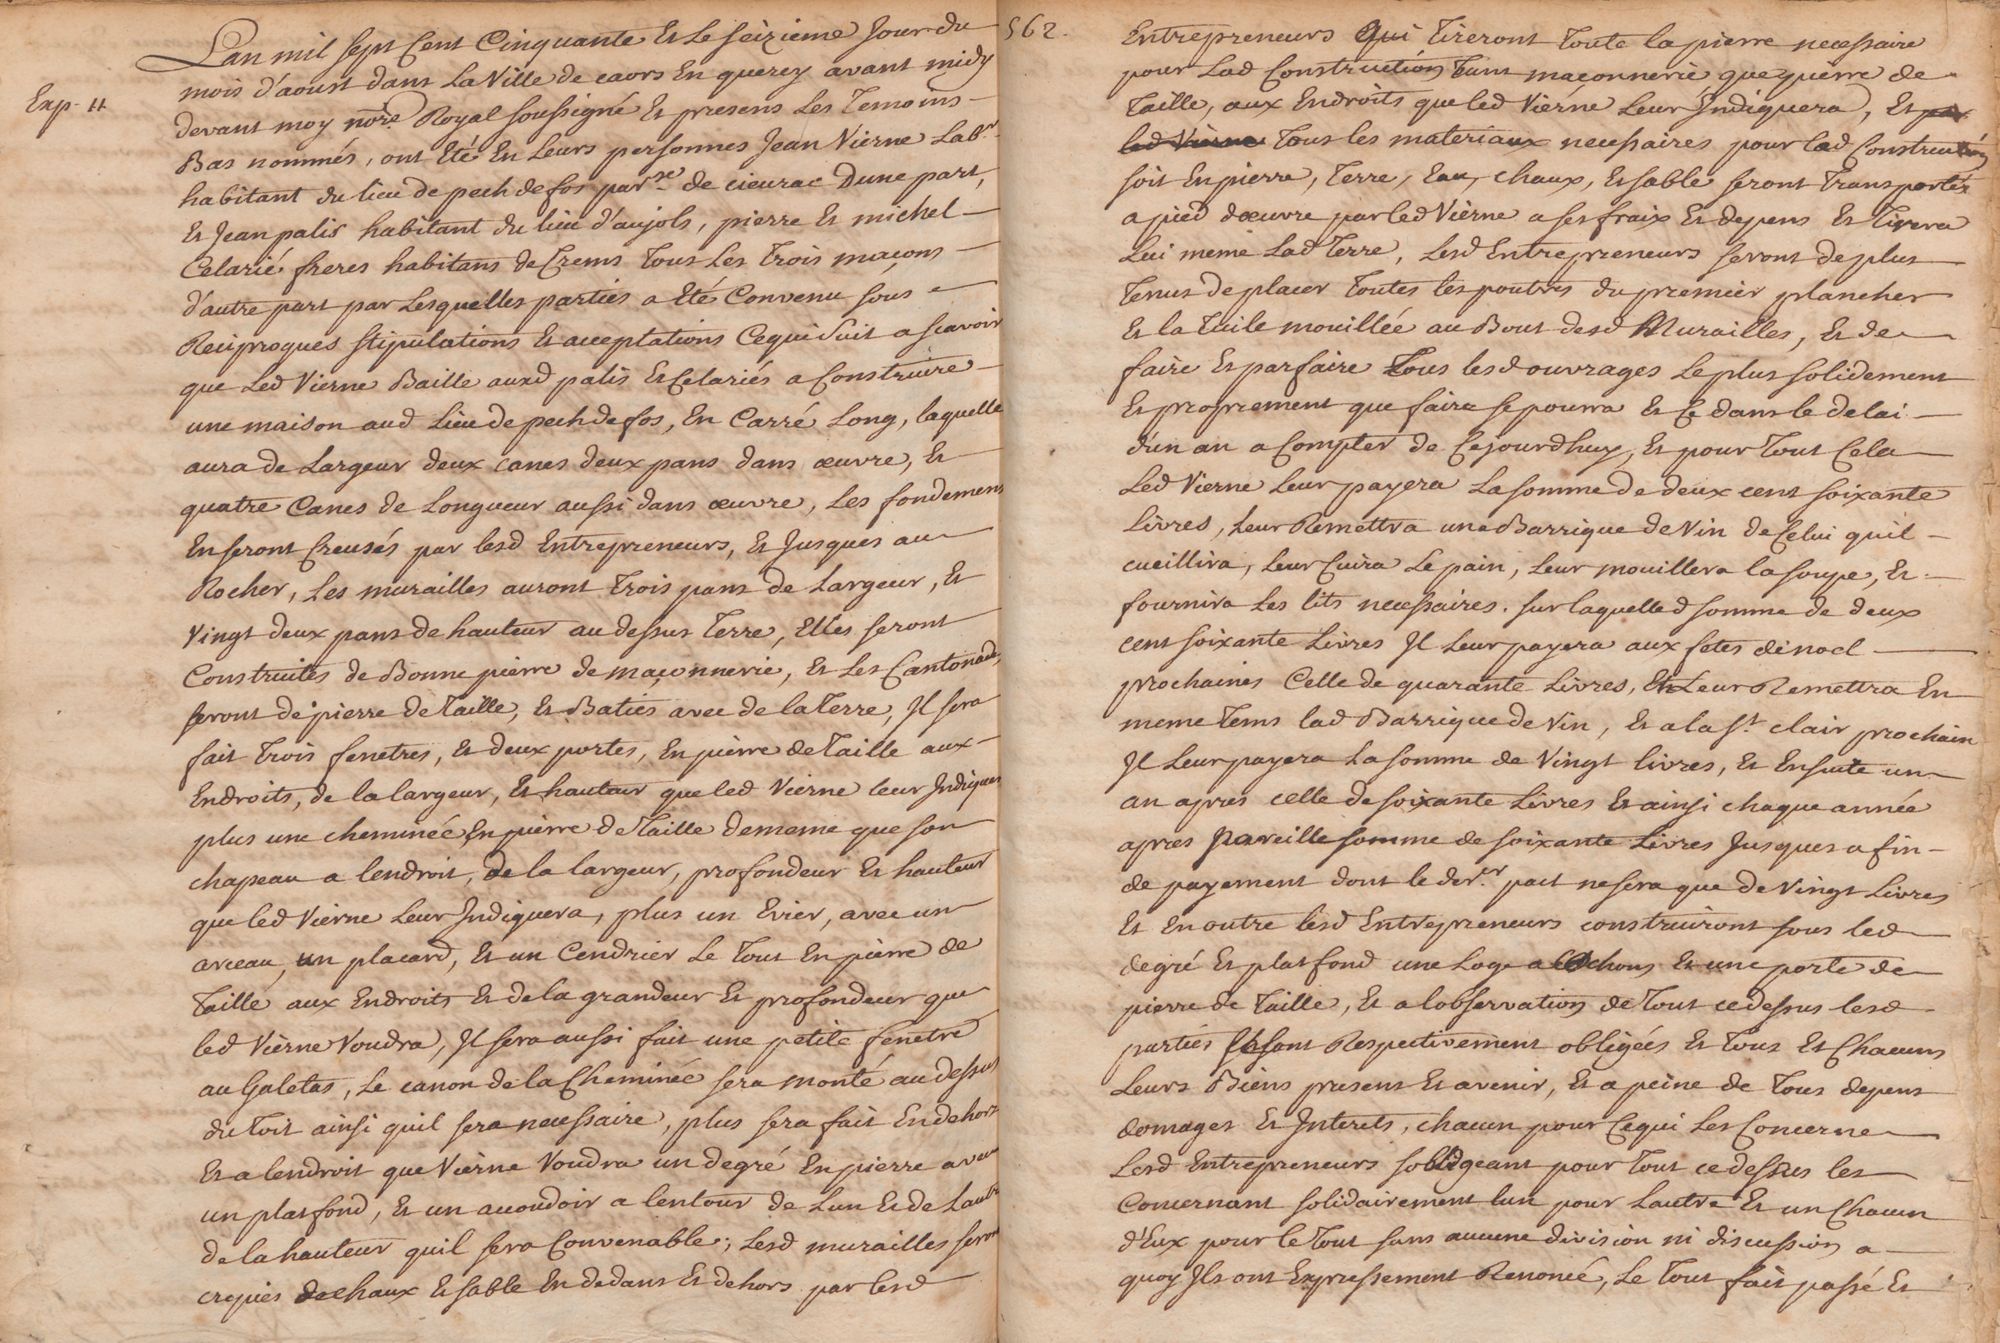 Exp. 11
Lan mil sept Cent Cinquante Et Le seizieme Jour du
mois d'aoust dans La Ville de caors En quercy avant midy
devant moy nore. Royal soussigné Et presens Les Temoins
Bas nommés, ont Eté En Leurs personnes Jean Vierne Labr.
habitant du lieu de pech de fos parse. de cieurac Dune part,
Et Jean palis habitant du lieu d'aujols, pierre Et michel
Celarié freres habitans de Crems Tous Les Trois maçons
d'autre part par Lesquelles parties a Eté Convenu sous
Reciproques stipulations Et acceptations Cequi Suit a scavoir
que Led Vierne Baille auxd palis Et Celariés a Construire
une maison aud Lieu de pech de fos, En Carré Long, laquelle
aura de Largeur deux canes deux pans dans œuvre, Et
quatre Canes de Longueur aussi dans œuvre, Les fondemens
En seront Creusés par lesd Entrepreneurs, Et Jusques au
Rocher, Les murailles auront Trois pans de Largeur, Et
Vingt deux pans de hauteur au dessus Terre, Elles seront
Construites de Bonne pierre de maçonnerie, Et Les Cantonades
seront de pierre de Taille, Et Baties avec de la Terre, Il sera
fait Trois fenetres, Et deux portes, En pierre de Taille aux
Endroits, de la largeur, Et hauteur que led Vierne leur Indiquera
plus une cheminée En pierre de Taille de meme que son
chapeau a lendroit, de la largeur, profondeur Et hauteur
que led Vierne Leur Indiquera, plus un Evier, avec un
arceau, un placard, Et un Cendrier Le Tout En pierre de
Taille aux Endroits Et de la grandeur Et profondeur que
led Vierne Voudra, Il sera aussi fait une petite fenetre
au Galetas, Le canon de la Cheminée sera monté au dessus
du Toit ainsi quil sera necessaire, plus sera fait En dehors
Et a lendroit que Vierne Voudra un degré En pierre avec
un platfond, Et un acoudoir a lentour de Lun Et de Lautre
de la hauteur quil sera Convenable; Lesd murailles seront
crepies de chaux Et sable En dedans Et dehors par lesd
562.
Entrepreneurs Qui Tireront Toute la pierre necessaire
pour Lad Construction Tant maçonnerie que pierre de
Taille, aux Endroits que led Vierne Leur Indiquera, Et par
led Vierne Tous les materiaux necessaires pour lad Construction
soit En pierre, Terre, Eau, chaux, Et sable seront Transportés
a pied dœuvre par led Vierne a ses fraix Et depens Et Tirera
Lui meme Lad Terre, Lesd Entrepreneurs seront de plus
Tenus de placer Toutes les poutres du premier plancher
Et la Tuile mouillée au Bout desd Murailles, Et de
faire Et parfaire Tous lesd ouvrages Le plus solidement
Et proprement que faire se pourra Et Ce dans le delai
d'un an a Compter de Cejourdhuy, Et pour Tout Cela
Led Vierne Leur payera La somme de deux cent soixante
Livres, Leur Remettra une Barrique de Vin de Celui quil
cueillira, Leur Cuira Le pain, Leur mouillera la soupe, Et
fournira Les lits necessaires. sur laquelle d somme de deux
cent soixante Livres Il Leur payera aux fetes de noel
prochaines Celle de quarante Livres, Et Leur Remettra En
meme Tems lad Barrique de Vin, Et a la St. clair prochain
Il Leur payera La somme de Vingt livres, Et Ensuite un
an apres celle de soixante Livres Et ainsi chaque année
apres pareille somme de soixante Livres Jusques a fin
de payement dont le der.r pact ne sera que de Vingt Livres
Et En outre lesd Entrepreneurs construiront sous led
degré Et platfond une Loge a Cochons Et une porte de
pierre de Taille, Et a lobservation de Tout ce dessus lesd
parties se sont Respectivement obligées Et Tous Et Chacuns
Leurs Biens presens Et avenir, Et a peine de Tous depens
domages Et Interets, chacun pour Cequi Les Concerne
Lesd Entrepreneurs sobligeant pour Tout ce dessus les
Concernant solidairement lun pour Lautre Et un Chacun
d'Eux pour le Tout sans aucune division ni discussion a
quoy Ils ont Expressement Renoncé, Le Tout fait passé Et